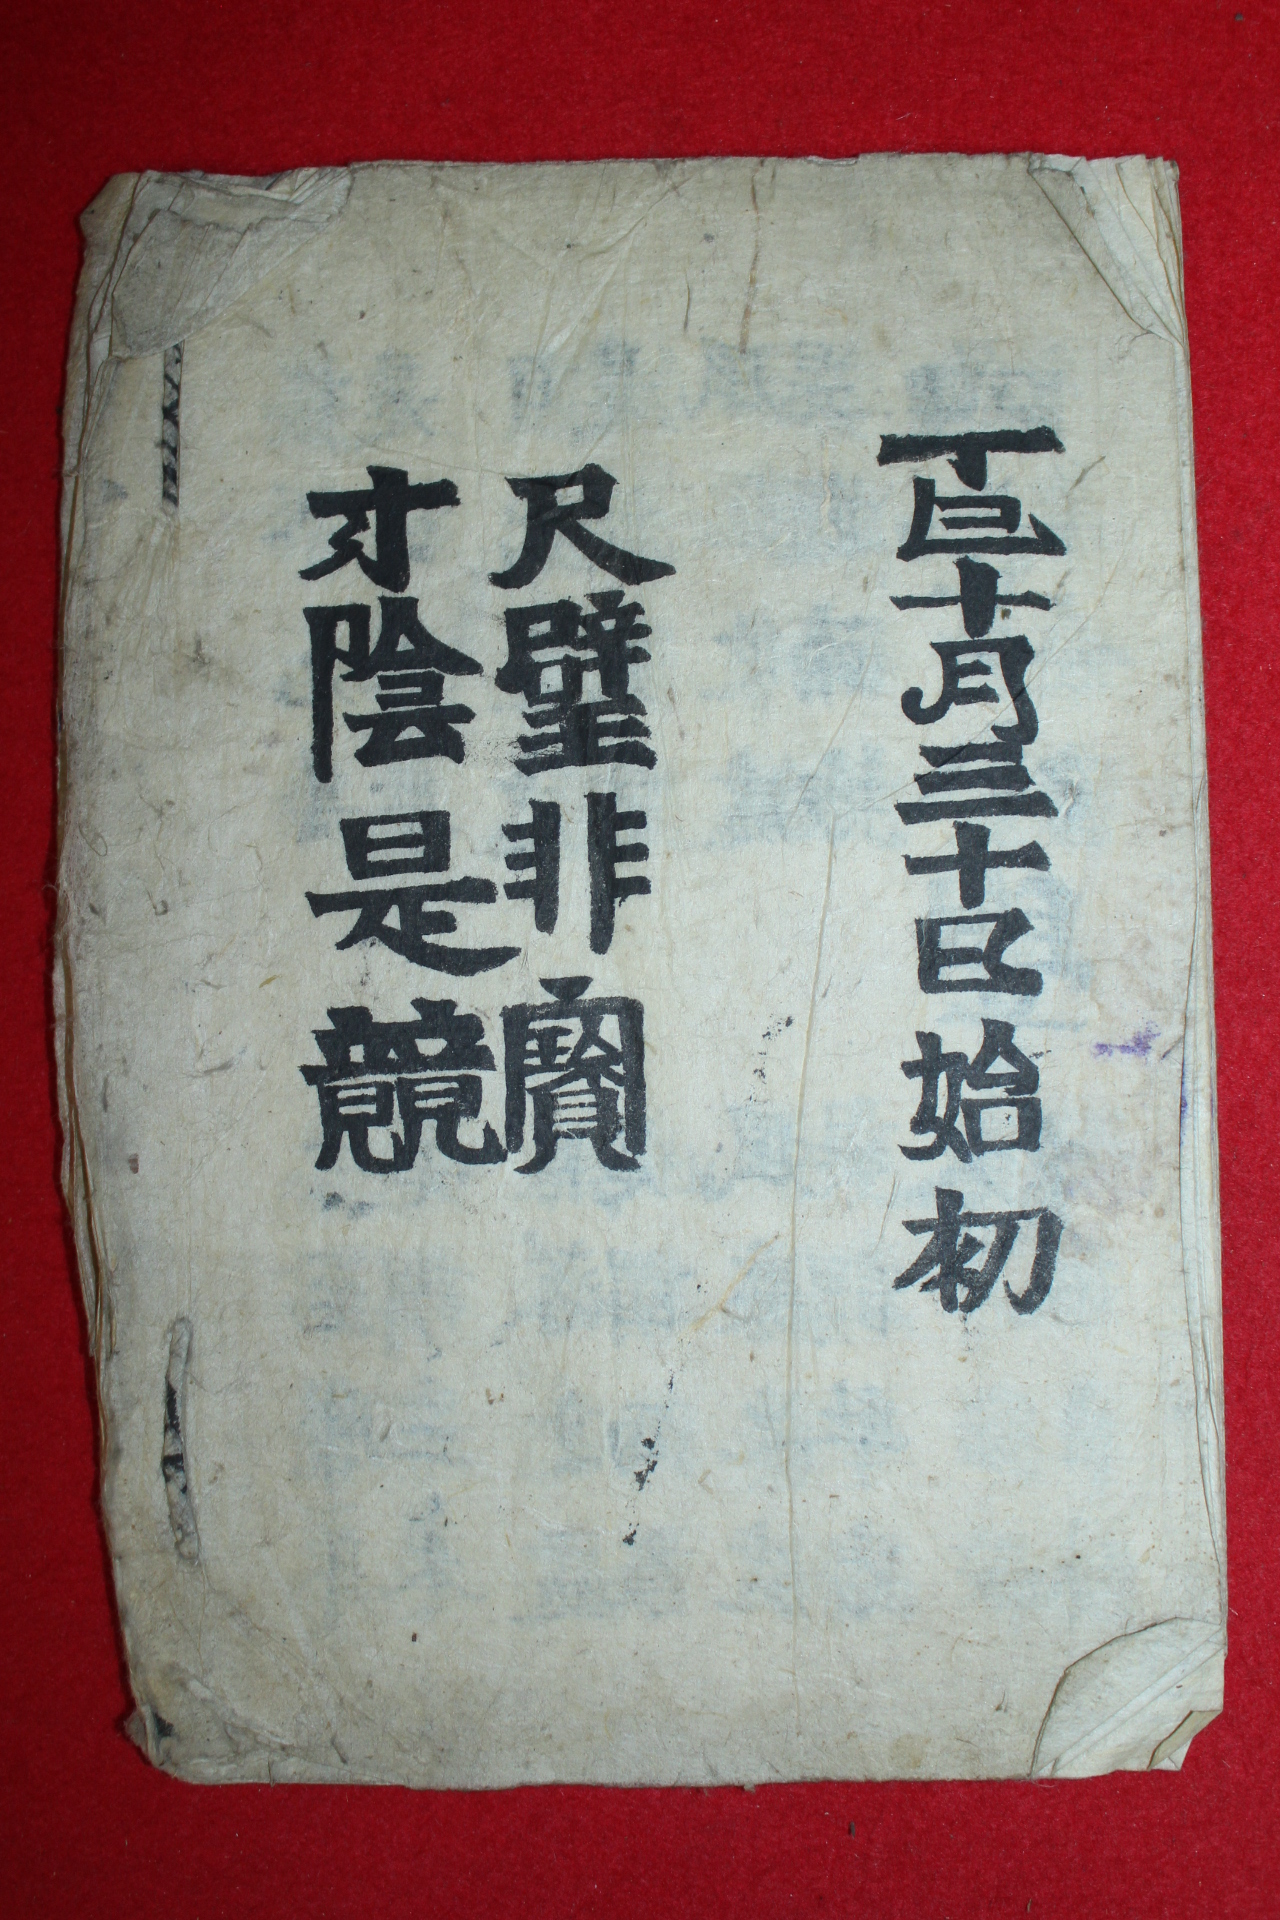 丁巳十月三十日始初
尺璧非寶
才陰是競